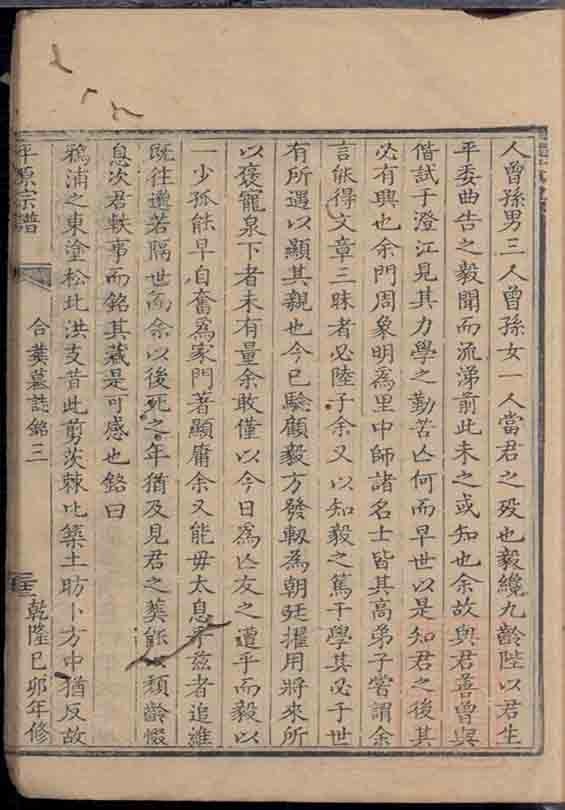 人曾孫男三人曾孫女一人當君之歿也毅纔九齡陸以君生
平委曲告之毅聞而流涕前此未之或知也余故與君善曾與
偕試于澄江見其力學之勤苦亾何而早世以是知君之後其
必有興也余門周象明爲里中師諸名士皆其高弟子嘗謂余
言能得文章三昧者必陸子余又以知毅之篤于學其必于世
有所遇以顯其親也今已驗顧毅方發軔爲朝廷擢用將來所
以褒寵泉下者未有量余敢僅以今日爲亾友之遭乎而毅以
一少孤能早自奮爲家門著顯庸余又能毋太息乎茲者追維
既往邈若隔世而余以後死之年猶及見君之葬能以頹齡惙
息次君軼事而銘其藏是可感也銘曰
鴉浦之東塗松北洪支昔此剪茨棘此築土昉卜方中猶反故
平原宗譜
合葬墓誌銘三
乾隆己卯年修